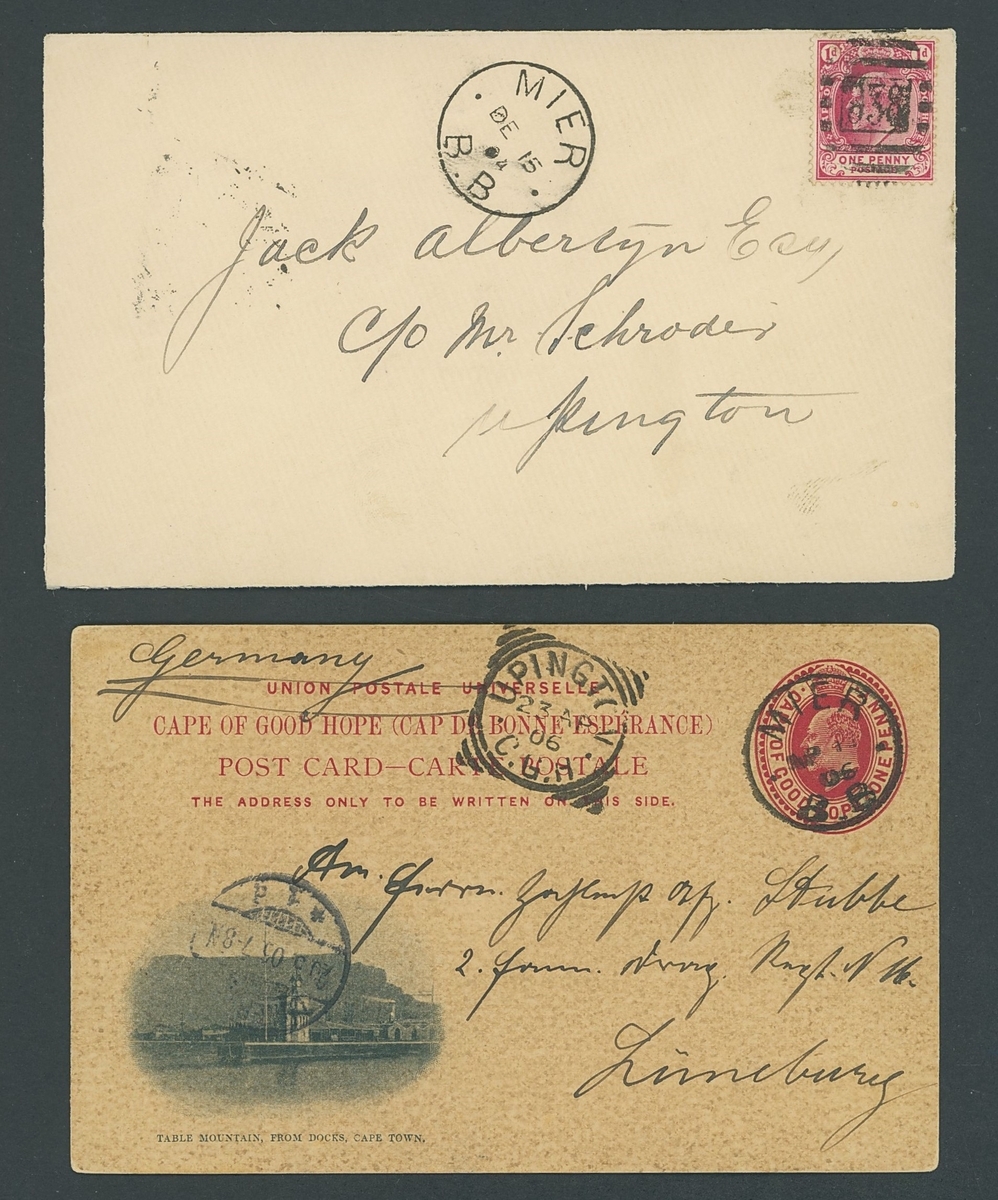 MIER
DE 15
04
B.B
1d 1d
ONE PENNY
POSTAGE
Jack Albertyn Esq
C/o Mr. Schroder
Upington
Germany
UNION POSTALE UNIVERSELLE
CAPE OF GOOD HOPE (CAP DE BONNE ESPERANCE)
POST CARD—CARTE POSTALE
THE ADDRESS ONLY TO BE WRITTEN ON THIS SIDE.
UPINGTON
23 AP
06
C.G.H.
CAPE OF GOOD HOPE ONE PENNY
MIER
06
B B
An Herrn Stubbe
2. Hann. Drag. Regt. N 16.
Lüneburg
TABLE MOUNTAIN, FROM DOCKS, CAPE TOWN.